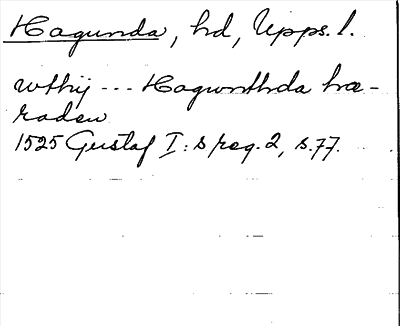 Hagunda, hd, Upps. l.
wthij --- Hagwnthda hæ-
radeu
1525 Gustaf I:s reg. 2, s. 77.